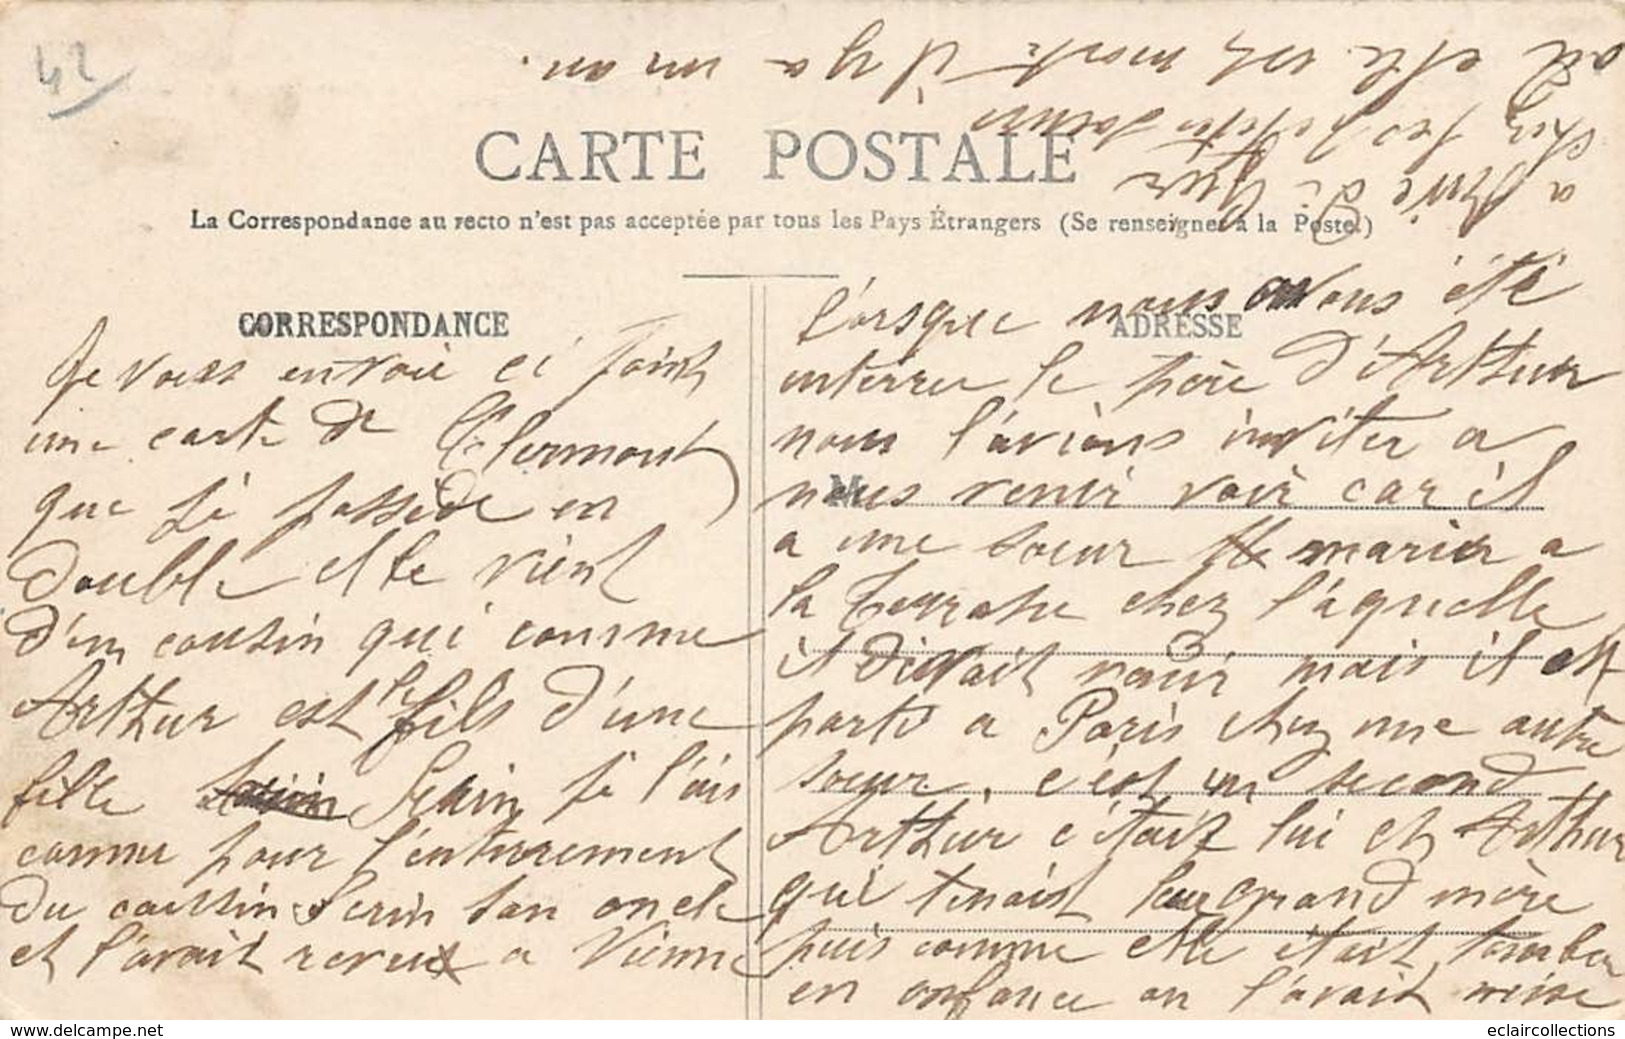 42
CARTE POSTALE
La Correspondance au recto n'est pas acceptée par tous les Pays Étrangers (Se renseigner à la Poste.)
CORRESPONDANCE
Je vous envoie ci joint
une carte de Clermont
que jè possède en
double elle vient
d'un cousin qui comme
Arthur est le fils d'une
fille Serin jè l'ais
connu pour l'enterrement
du cousin Serin son oncle
et l'avait revu a Vienne
ADRESSE
lorsque nous avons été
enterrer le père d'Arthur
nous l'avions inviter a
nous venir voir car il
a une soeur marier a
la chez l'aquelle
il devait venir mais il est
parti a Paris chez une autre
soeur. c'est un second
Arthur c'était lui et Arthur
qui tenait leur grand mère
puis comme elle était tomber
en enfance on l'avait mise
a Rive de Gier
chez les petites soeurs
où elle est morte il y a un an.
www.delcampe.net
eclaircollections